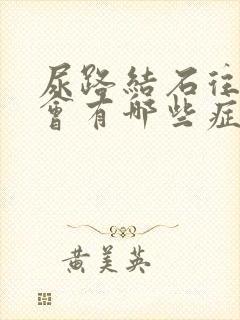 尿路結石往
會有哪些症
黃美英